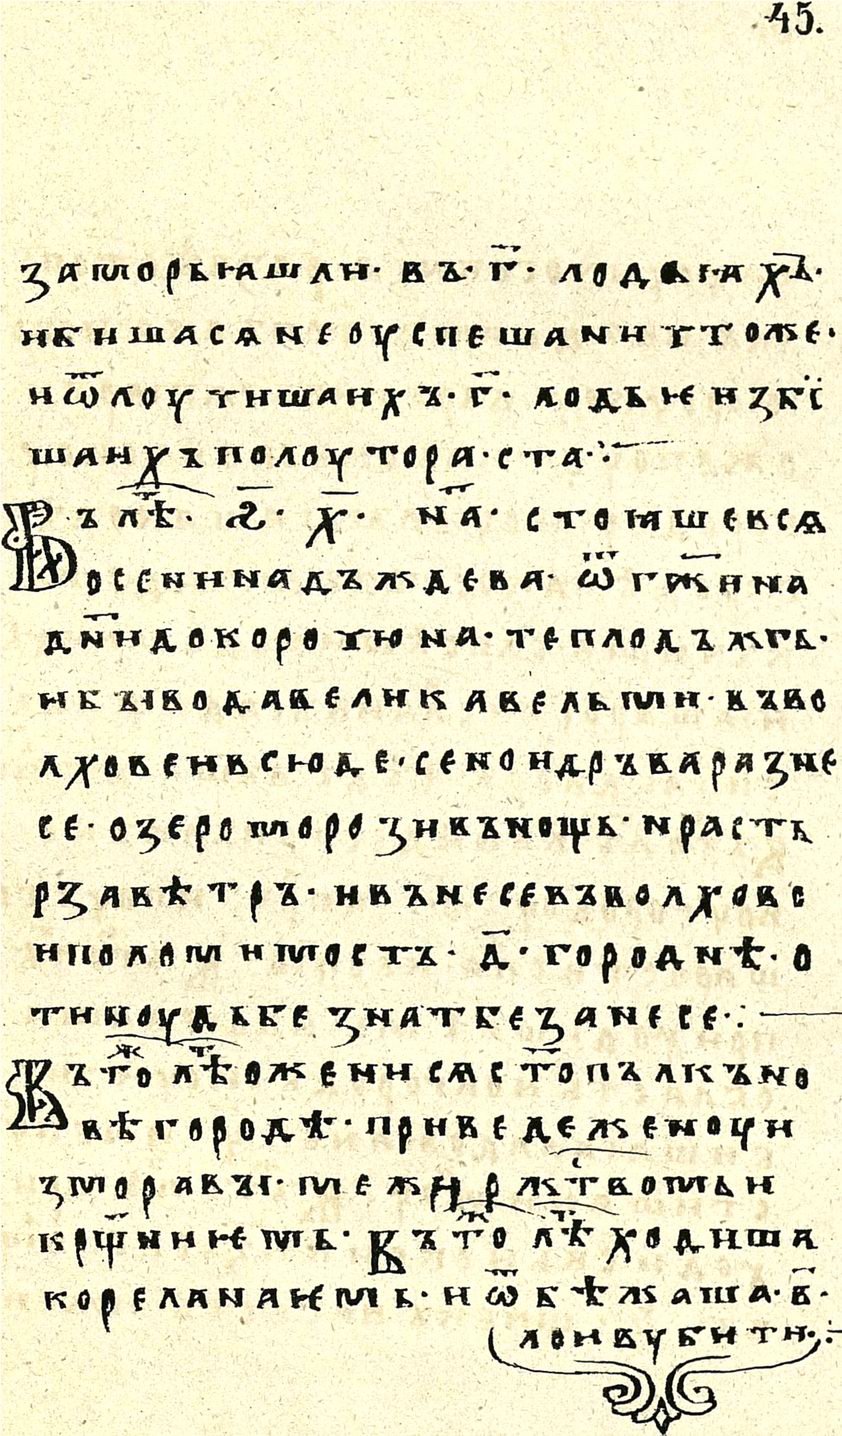 45.
заморьꙗшли· въ·г҃· лодьꙗхъ·
ибишасѧнеоуспешаничтоже·
иѿлоучишаихъ·г҃· лодьѥизбї
шаихъполоутора·ста·:
Въ лѣ҃т· ҂ѕ҃· х҃· на҃· стоꙗшевсѧ
осенинадъждева· ѿгж҃ина
дн҃идокорочюна· теплодъжгь·
ибꙑводавеликавельми· въво
лховеивсюде· сеноидръваразне
се· озероморозивъношь· ирасть
рзавѣтръ· ивънесевъволхово
иполомимостъ· д҃· городнѣ· о
тиноудьбезнатбезанесе·:
Въ тоⷤ лѣⷮ оженисѧс҃топълкъно
вѣгородѣ· приведеженоуи
зморавꙑ· межирⷤтⷭ҇вомьи
крщ҃ниѥмь· Въ тоⷤ лѣⷮ ходиша
кореланаѥмь· иѿбѣжаша·в҃·
лоивубити·: